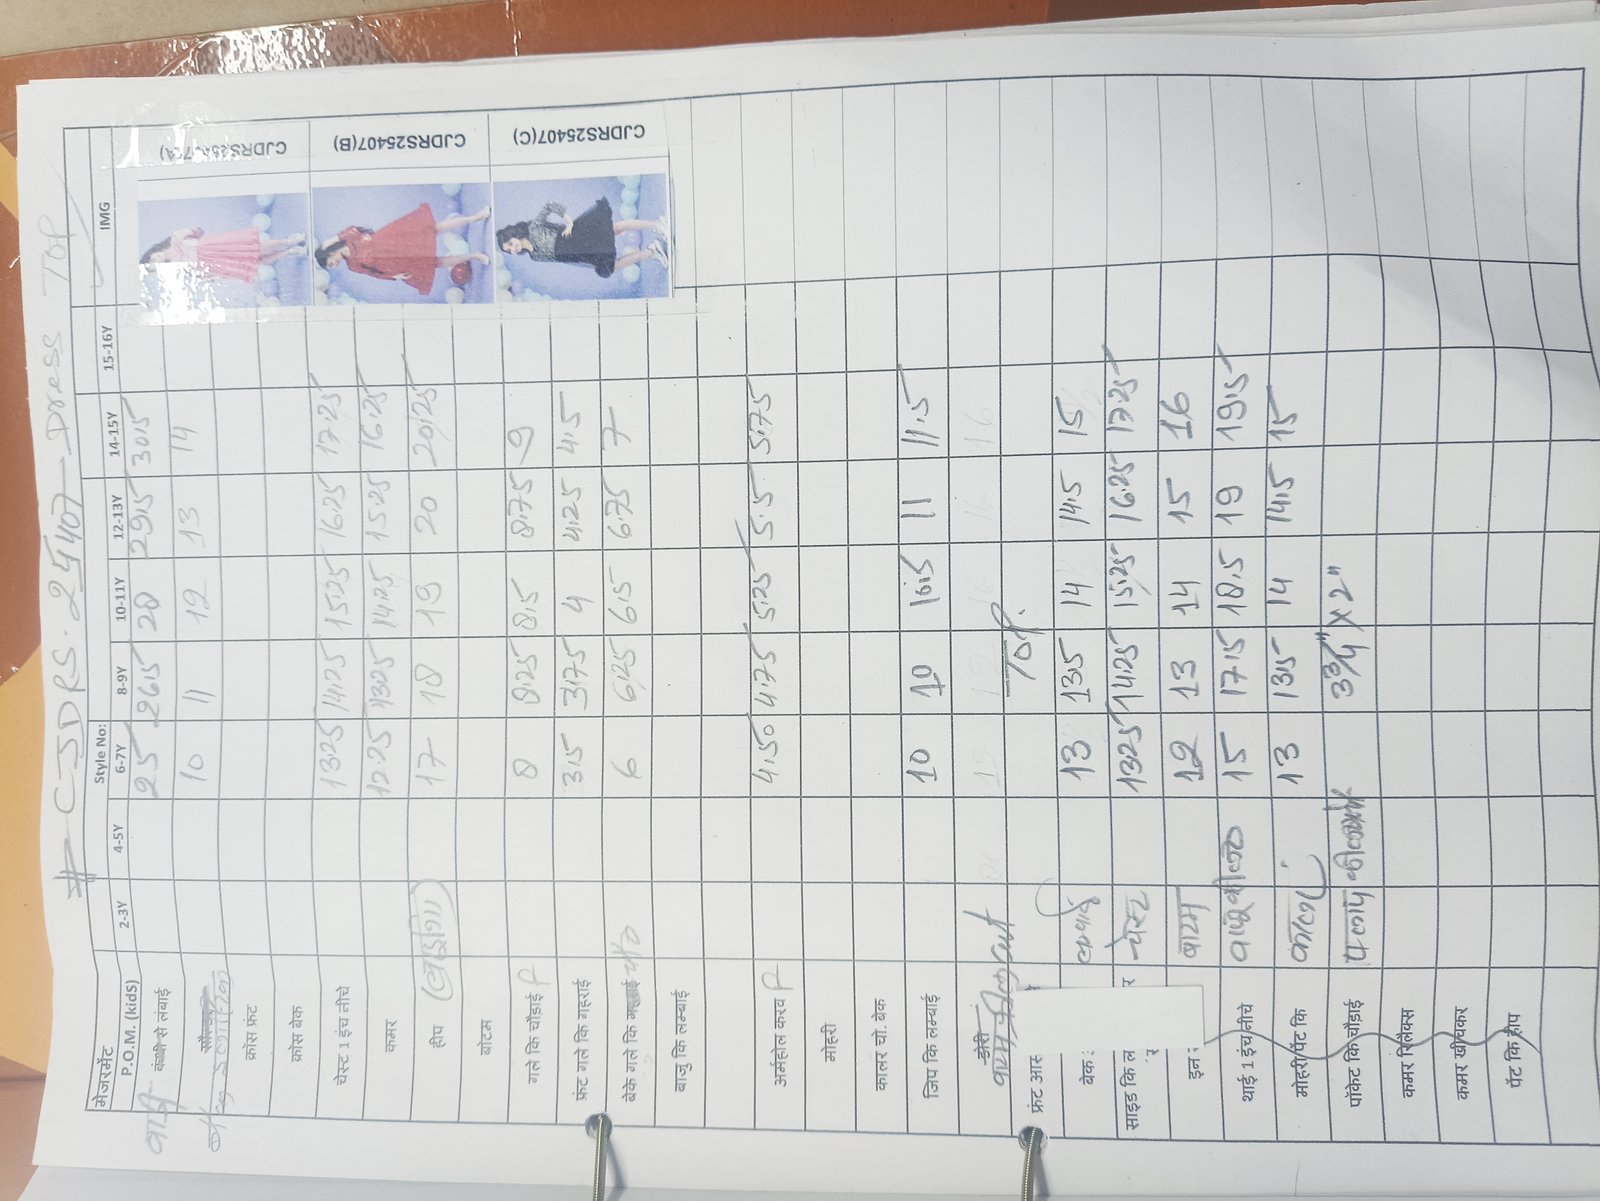 # CJDRS.25407 - Dress TOP
मेजरमेंट Style No: IMG
P.O.M. (kidS) 2-3Y 4-5Y 6-7Y 8-9Y 10-11Y 12-13Y 14-15Y 15-16Y
से लंबाई 25 26.5 28 29.5 30.5
10 11 12 13 14
क्रॉस फ्रंट
क्रॉस बेक
चेस्ट 1 इंच नीचे 13.25 14.25 15.25 16.25 17.25
कमर 12.25 13.25 14.25 15.25 16.25
हीप 17 18 19 20 20.25
बॉटम
गले कि चौड़ाई 8 8.25 8.5 8.75 9
फ्रंट गले कि गहराई 3.5 3.75 4 4.25 4.5
बेके गले कि 6 6.25 6.5 6.75 7
बाजु कि लम्बाई
अर्महोल करव 4.50 4.75 5.25 5.5 5.75
मोहरी
कालर चो. बेक
जिप कि लम्बाई 10 10 10.5 11 11.5
डोरी
फ्रंट आस TOP.
बेक 13 13.5 14 14.5 15
साइड कि ल चेस्ट 13.25 14.25 15.25 16.25 17.25
इन 12 13 14 15 16
थाई 1 इंच नीचे 15 17.5 18.5 19 19.5
मोहरी पेंट कि 13 13.5 14 14.5 15
पॉकेट कि चौड़ाई 3 3/4" x 2"
कमर रिलैक्स
कमर खीचकर
पेंट कि हीप
CJDRS25407(A) CJDRS25407(B) CJDRS25407(C)